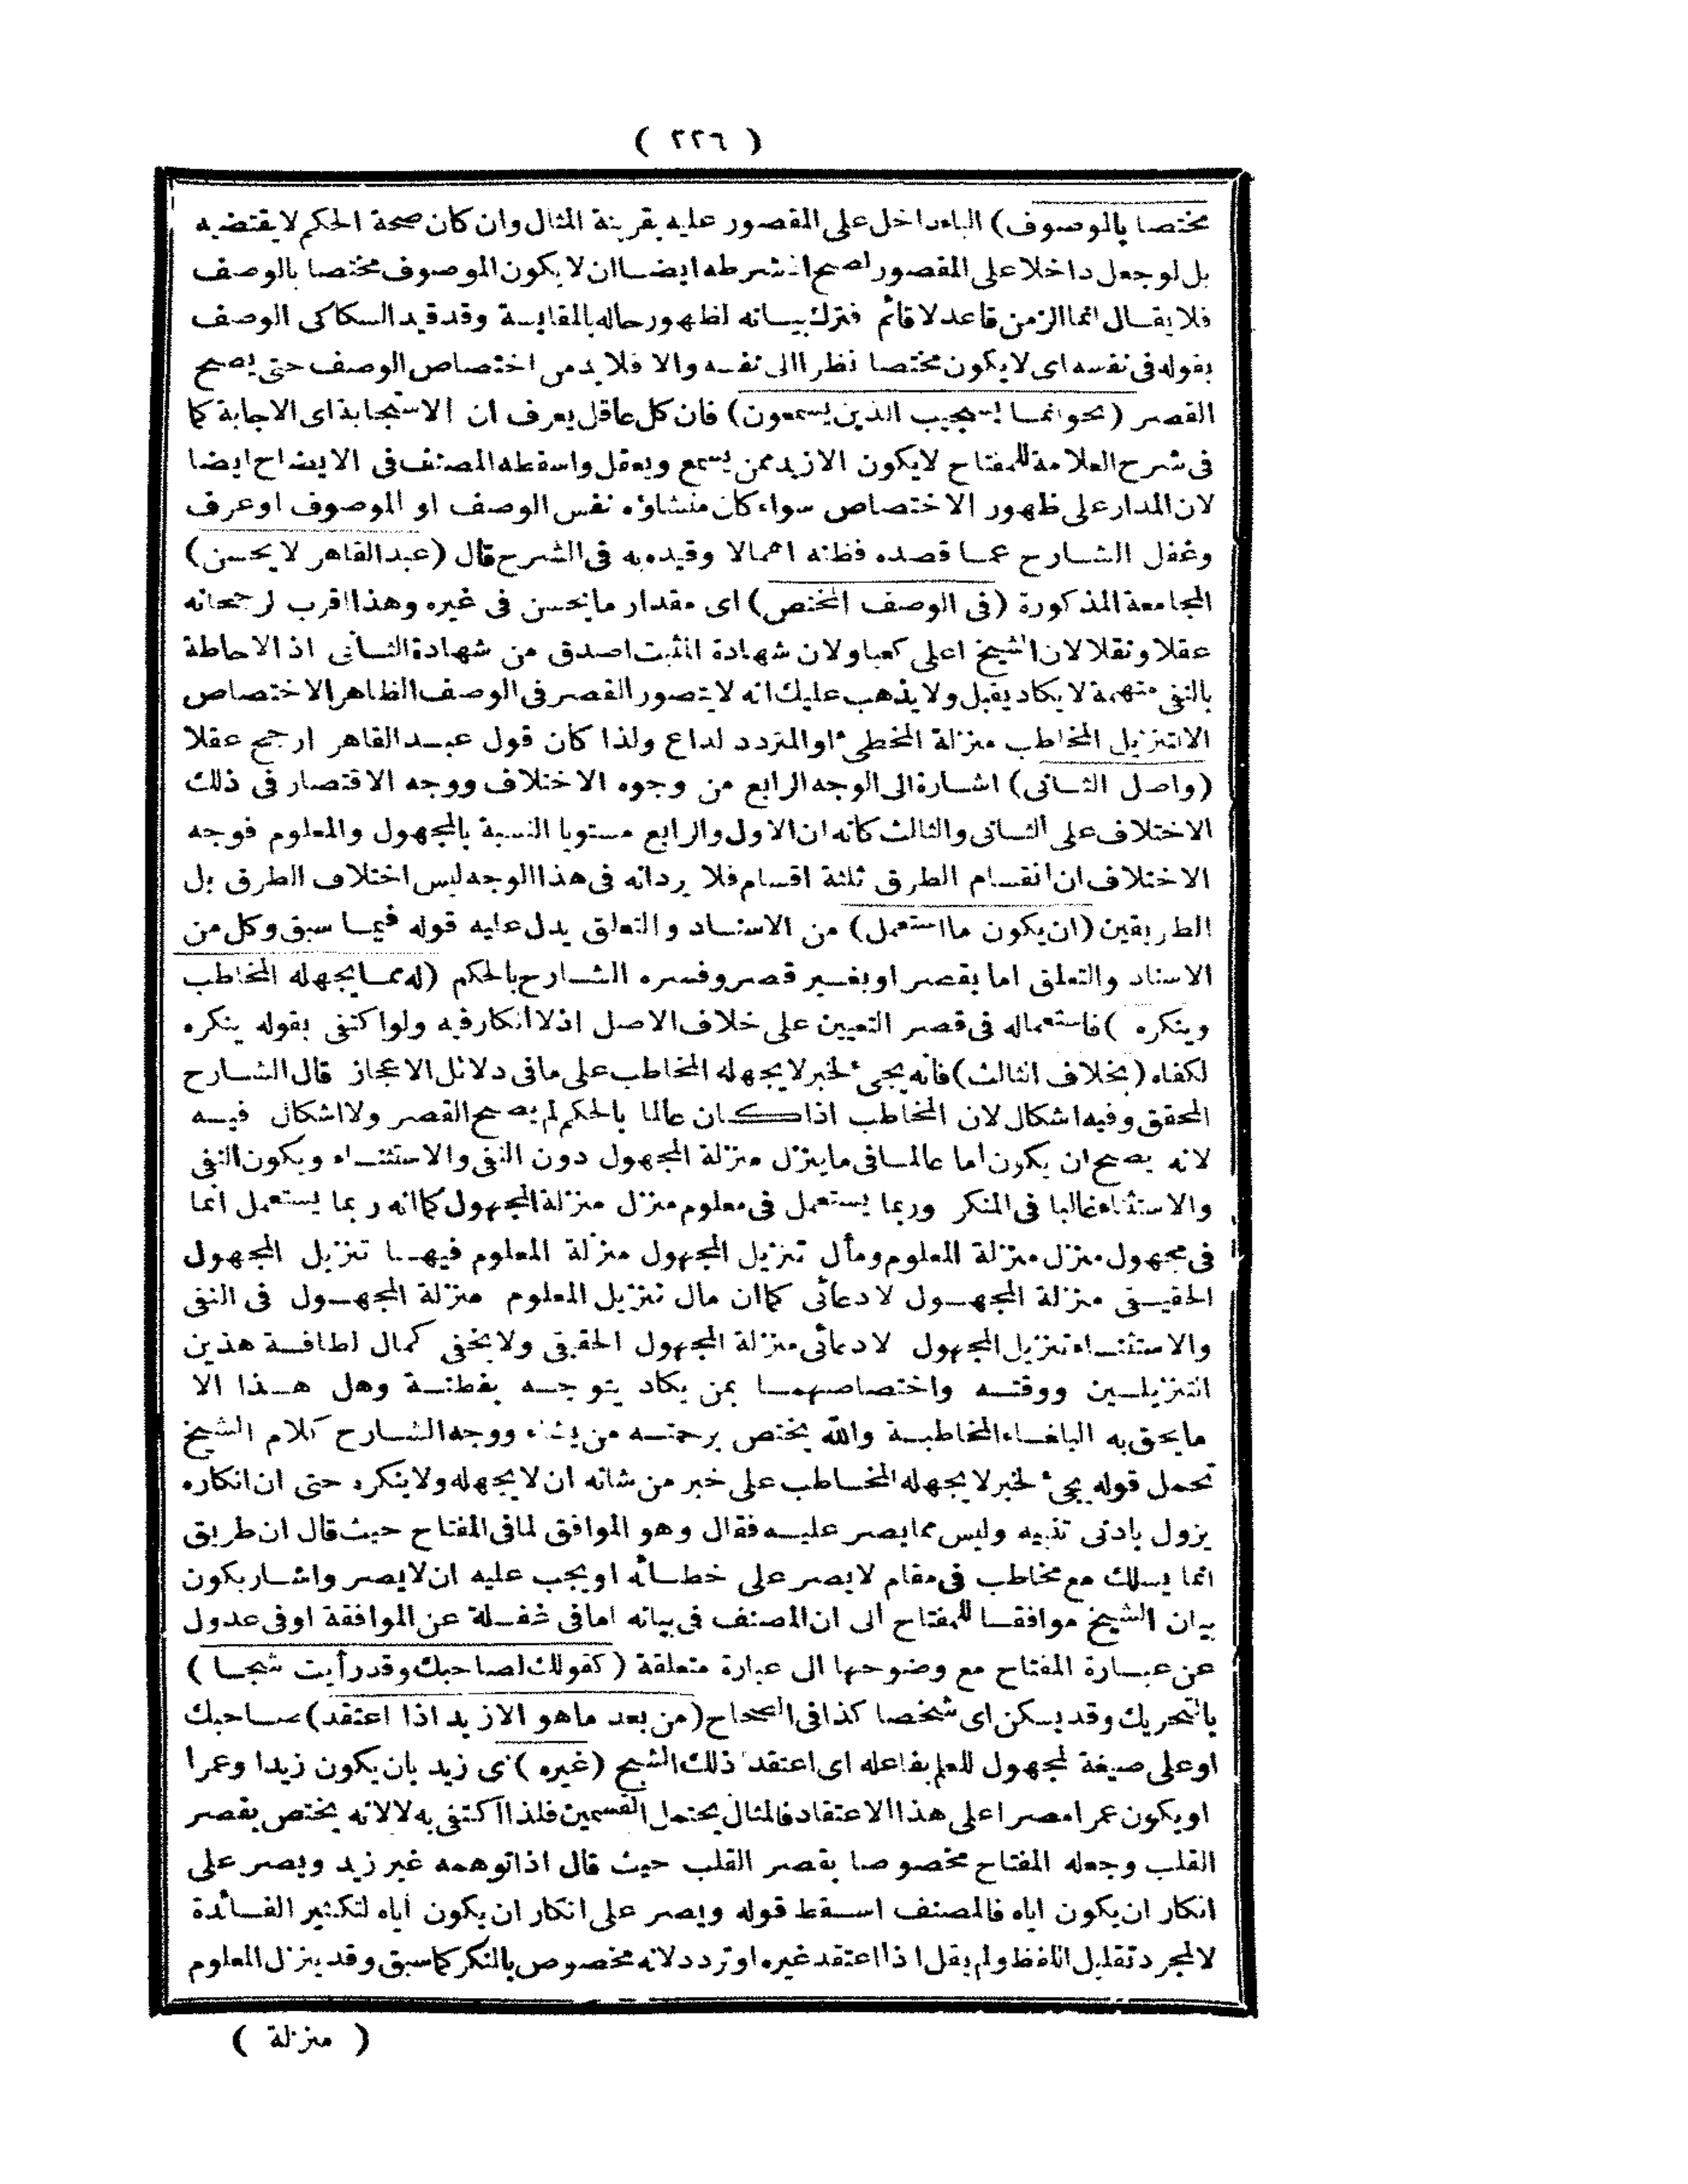 ( ٢٢٦ )
مختصا بالموصوف) الباء داخل على المقصور عليه بقرينة المثال وان كان صحة الحكم لا يقتضيه
بل لو جعل داخلا على المقصور لصح اذ شرطه ايضا ان لا يكون الموصوف مختصا بالوصف
فلا يقال انما الزمن قاعد لا قائم فترك بيانه لظهور حاله بالمقايسة وقد قيد السكاكى الوصف
بقوله فى نفسه اى لا يكون مختصا نظرا الى نفسه والا فلا بد من اختصاص الوصف حتى يصح
القصر (نحو انما يستجيب الذين يسمعون) فان كل عاقل يعرف ان الاستجابة اى الاجابة كما
فى شرح العلامة للمفتاح لا يكون الا زيد ممن يسمع ويعقل واسقطه المصنف فى الايضاح ايضا
لان المدار على ظهور الاختصاص سواء كان منشاؤه نفس الوصف او الموصوف او عرف
وغفل الشارح عما قصده فظنه اهمالا وقيده به فى الشرح قال (عبد القاهر لا يحسن)
المجامعة المذكورة (فى الوصف المختص) اى مقدار ما يحسن فى غيره وهذا اقرب لرجحانه
عقلا ونقلا لان الشيخ اعلى كعبا ولان شهادة المثبت اصدق من شهادة الثانى اذ الاحاطة
بالنفى متهمة لا يكاد يقبل ولا يذهب عليك انه لا يتصور القصر فى الوصف الظاهر الاختصاص
الا لتنزيل المخاطب منزلة المخطئ او المتردد لداع ولذا كان قول عبد القاهر ارجح عقلا
(واصل الثانى) اشارة الى الوجه الرابع من وجوه الاختلاف ووجه الاقتصار فى ذلك
الاختلاف على الثانى والثالث كأنه ان الاول والرابع مستويا النسبة بالمجهول والمعلوم فوجه
الاختلاف ان انقسام الطرق ثلثة اقسام فلا يرد انه فى هذا الوجه ليس اختلاف الطرق بل
الطريقين (ان يكون ما استعمل) من الاسناد والتعلق يدل عليه قوله فيما سبق وكل من
الاسناد والتعلق اما بقصر او بغير قصر وفسره الشارح بالحكم (له مما يجهله المخاطب
وينكره ) فاستعماله فى قصر التعيين على خلاف الاصل اذ لا انكار فيه ولو اكتفى بقوله ينكره
لكفاه (بخلاف الثالث) فأنه يجئ لخبر لا يجهله المخاطب على ما فى دلائل الاعجاز قال الشارح
المحقق وفيه اشكال لان المخاطب اذا كان عالما بالحكم لم يصح القصر ولا اشكال فيه
لانه يصح ان يكون اما عالما فى ما ينزل منزلة المجهول دون النفى والاستثناء ويكون النفى
والاستثناء غالبا فى المنكر وربما يستعمل فى معلوم منزل منزلة المجهول كما انه ربما يستعمل انما
فى مجهول منزل منزلة المعلوم ومأل تنزيل المجهول منزلة المعلوم فيها تنزيل المجهول
الحقيقى منزلة المجهول لادعائى كما ان مال تنزيل المعلوم منزلة المجهول فى النفى
والاستثناء تنزيل المجهول لادعائى منزلة المجهول الحقيقى ولا يخفى كمال لطافة هذين
التنزيلين ووقته واختصاصهما بمن يكاد يتوجه بفطنة وهل هذا الا
ما يحق به البلغاء المخاطبة والله يختص برحمته من يشاء ووجه الشارح كلام الشيخ
تحمل قوله يجئ لخبر لا يجهله المخاطب على خبر من شانه ان لا يجهله ولا ينكره حتى ان انكاره
يزول بادنى تنبيه وليس مما يصر عليه فقال وهو الموافق لما فى المفتاح حيث قال ان طريق
انما يسلك مع مخاطب فى مقام لا يصر على خطأه او يجب عليه ان لا يصر واشار بكون
بيان الشيخ موافقا للمفتاح الى ان المصنف فى بيانه اما فى غفلة عن الموافقة او فى عدول
عن عبارة المفتاح مع وضوحها الى عبارة متعلقة (كقولك لصاحبك وقد رأيت شبحا )
بالتحريك وقد يسكن اى شخصا كذا فى الصحاح (من بعد ما هو الا زيد اذا اعتقد) صاحبك
او على صيغة لمجهول للعلم بفاعله اى اعتقد ذلك الشبح (غيره ) اى زيد بان يكون زيدا وعمرا
او يكون عمرا مصرا على هذا الاعتقاد فالمثال يحتمل القسمين فلذا اكتفى به لا لانه يختص بقصر
القلب وجعله المفتاح مخصوصا بقصر القلب حيث قال اذا توهمه غير زيد ويصر على
انكار ان يكون اياه فالمصنف اسقط قوله ويصر على انكار ان يكون اياه لتكثير الفائدة
لا لمجرد تقليل اللفظ ولم يقل اذا اعتقد غيره او تردد لانه مخصوص بالنكر كما سبق وقد ينزل المعلوم
( منزلة )